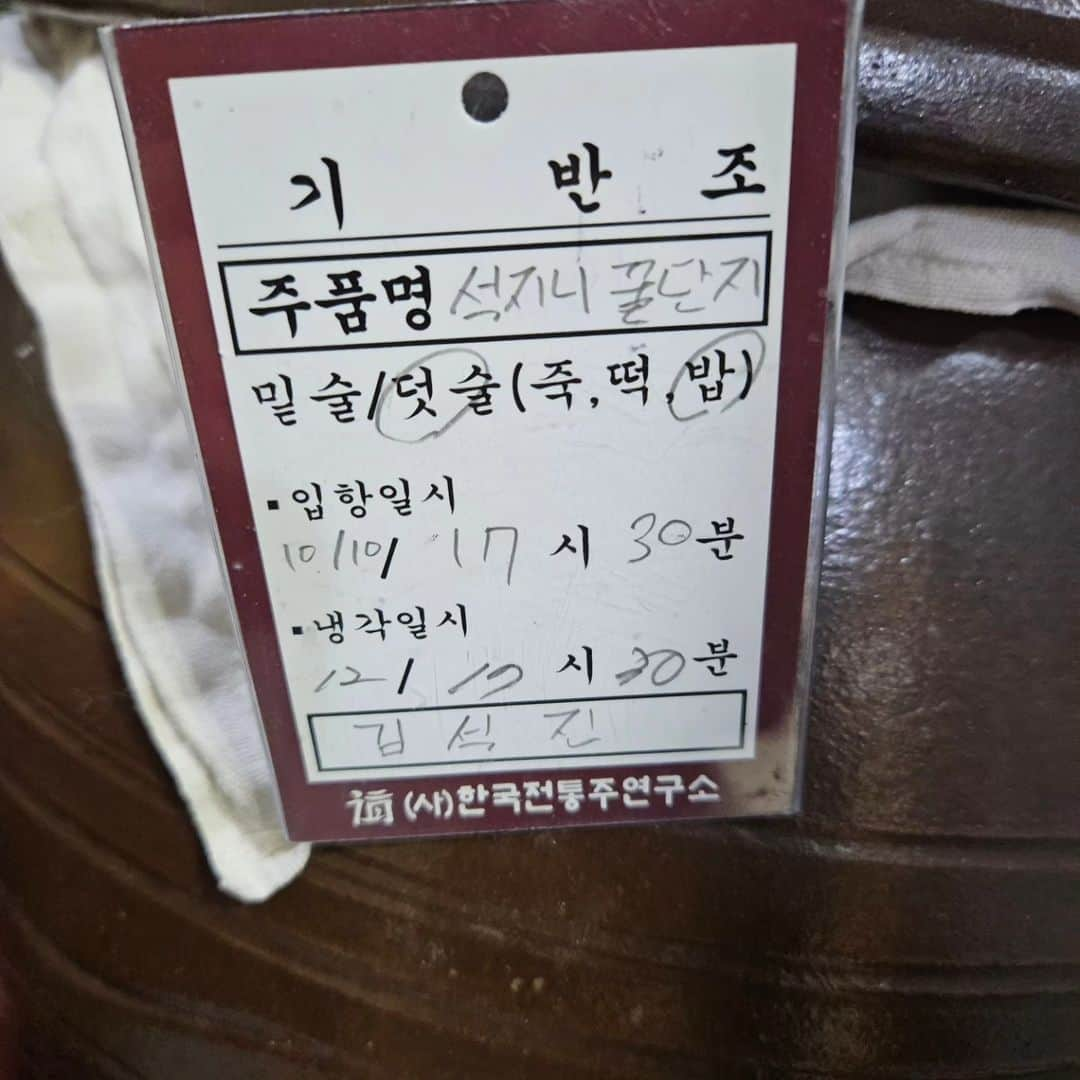 기 반 조
주품명 석지니 꿀단지
밑술/덧술(죽,떡,밥)
▪입항일시
10/10/ 17 시 30분
▪냉각일시
12/ 17 시 30분
김석진
(사)한국전통주연구소